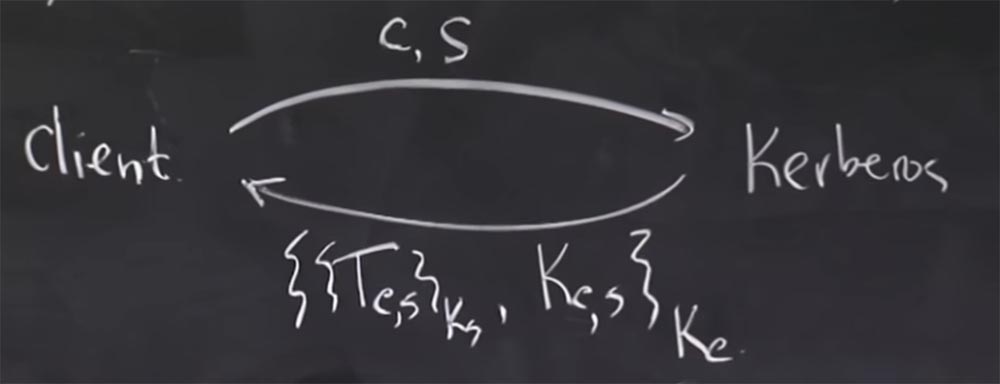 C, S
Client
Kerberos
{{Tc,s}Ks, Kc,s}Kc